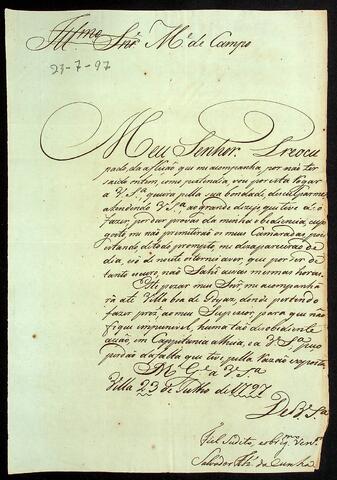 Illmo Snr Me de Campo
23-7-97
Meu Senhor. Preocu
pado da aflição que me acompanha, por não ter
saido ontem, como pertendia, vou por esta rogar
a V. Sa queira pella sua bondade, desculparme,
atendendo V. Sa ao grande dezejo que tive de o
fazer, por dar provas da minha obediencia, cujo
me não premitirão os meus Camaradas, por
estando de todo prompto, me dezapareceirão de
dia, e só de noite os tornei aver, que por ser de
tanto escuro, não Sahi a essas mesmas horas.
Este pezar meu Snr, me acompanha
rá até Villa boa de Goyaz, donde pertendo
fazer prezte ao meu Superior, para que não
fique impunivel, huma tão desobediente
ação, em Capitania alheia, e a V. Sa peço
perdão da falta que tive pella razão exposta.
De Ge a V. Sa
Villa 23 de Julho de 1797
De V. Sa
Fiel Sudito, e obrigmo Vene
Salvador da Cunha